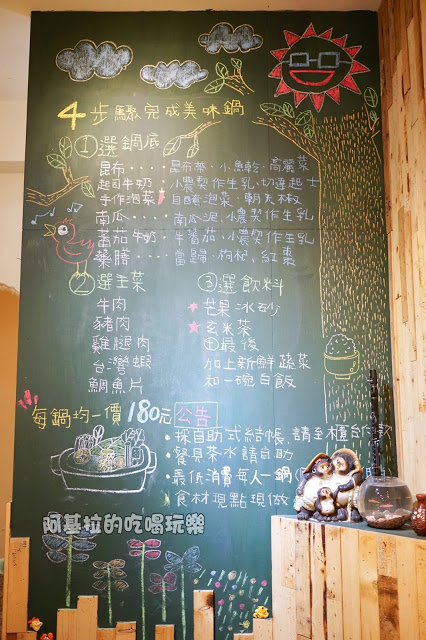 4步驟完成美味鍋
①選鍋底
昆布····昆布帶、小魚乾、高麗菜
起司牛奶·小農契作生乳、切達起士
手作泡菜·自醃泡菜、朝天椒
南瓜····南瓜泥、小農契作生乳
蕃茄牛奶·牛蕃茄、小農契作生乳
藥膳····當歸、枸杞、紅棗
②選主菜
牛肉
豬肉
雞腿肉
台灣蝦
鯛魚片
③選飲料
芒果冰砂
玄米茶
④最後
加上新鮮蔬菜
和一碗白飯
每鍋均一價180元
公告
·採自助式結帳,請至櫃台付款
·餐具茶水請自助
·最低消費每人一鍋
·食材現點現做
阿基拉的吃喝玩樂